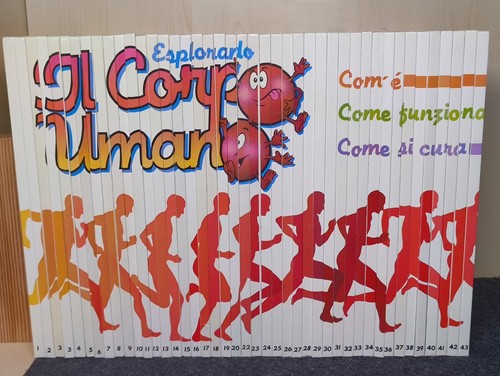 Esplorando
Il Corpo
Umano
Com'è
Come funziona
Come si cura
1 2 3 3 4 5 6 7 8 9 10 11 12 13 14 15 16 17 18 19 20 22 23 24 25 26 27 28 29 30 31 32 33 34 35 36 37 38 39 40 41 42 43